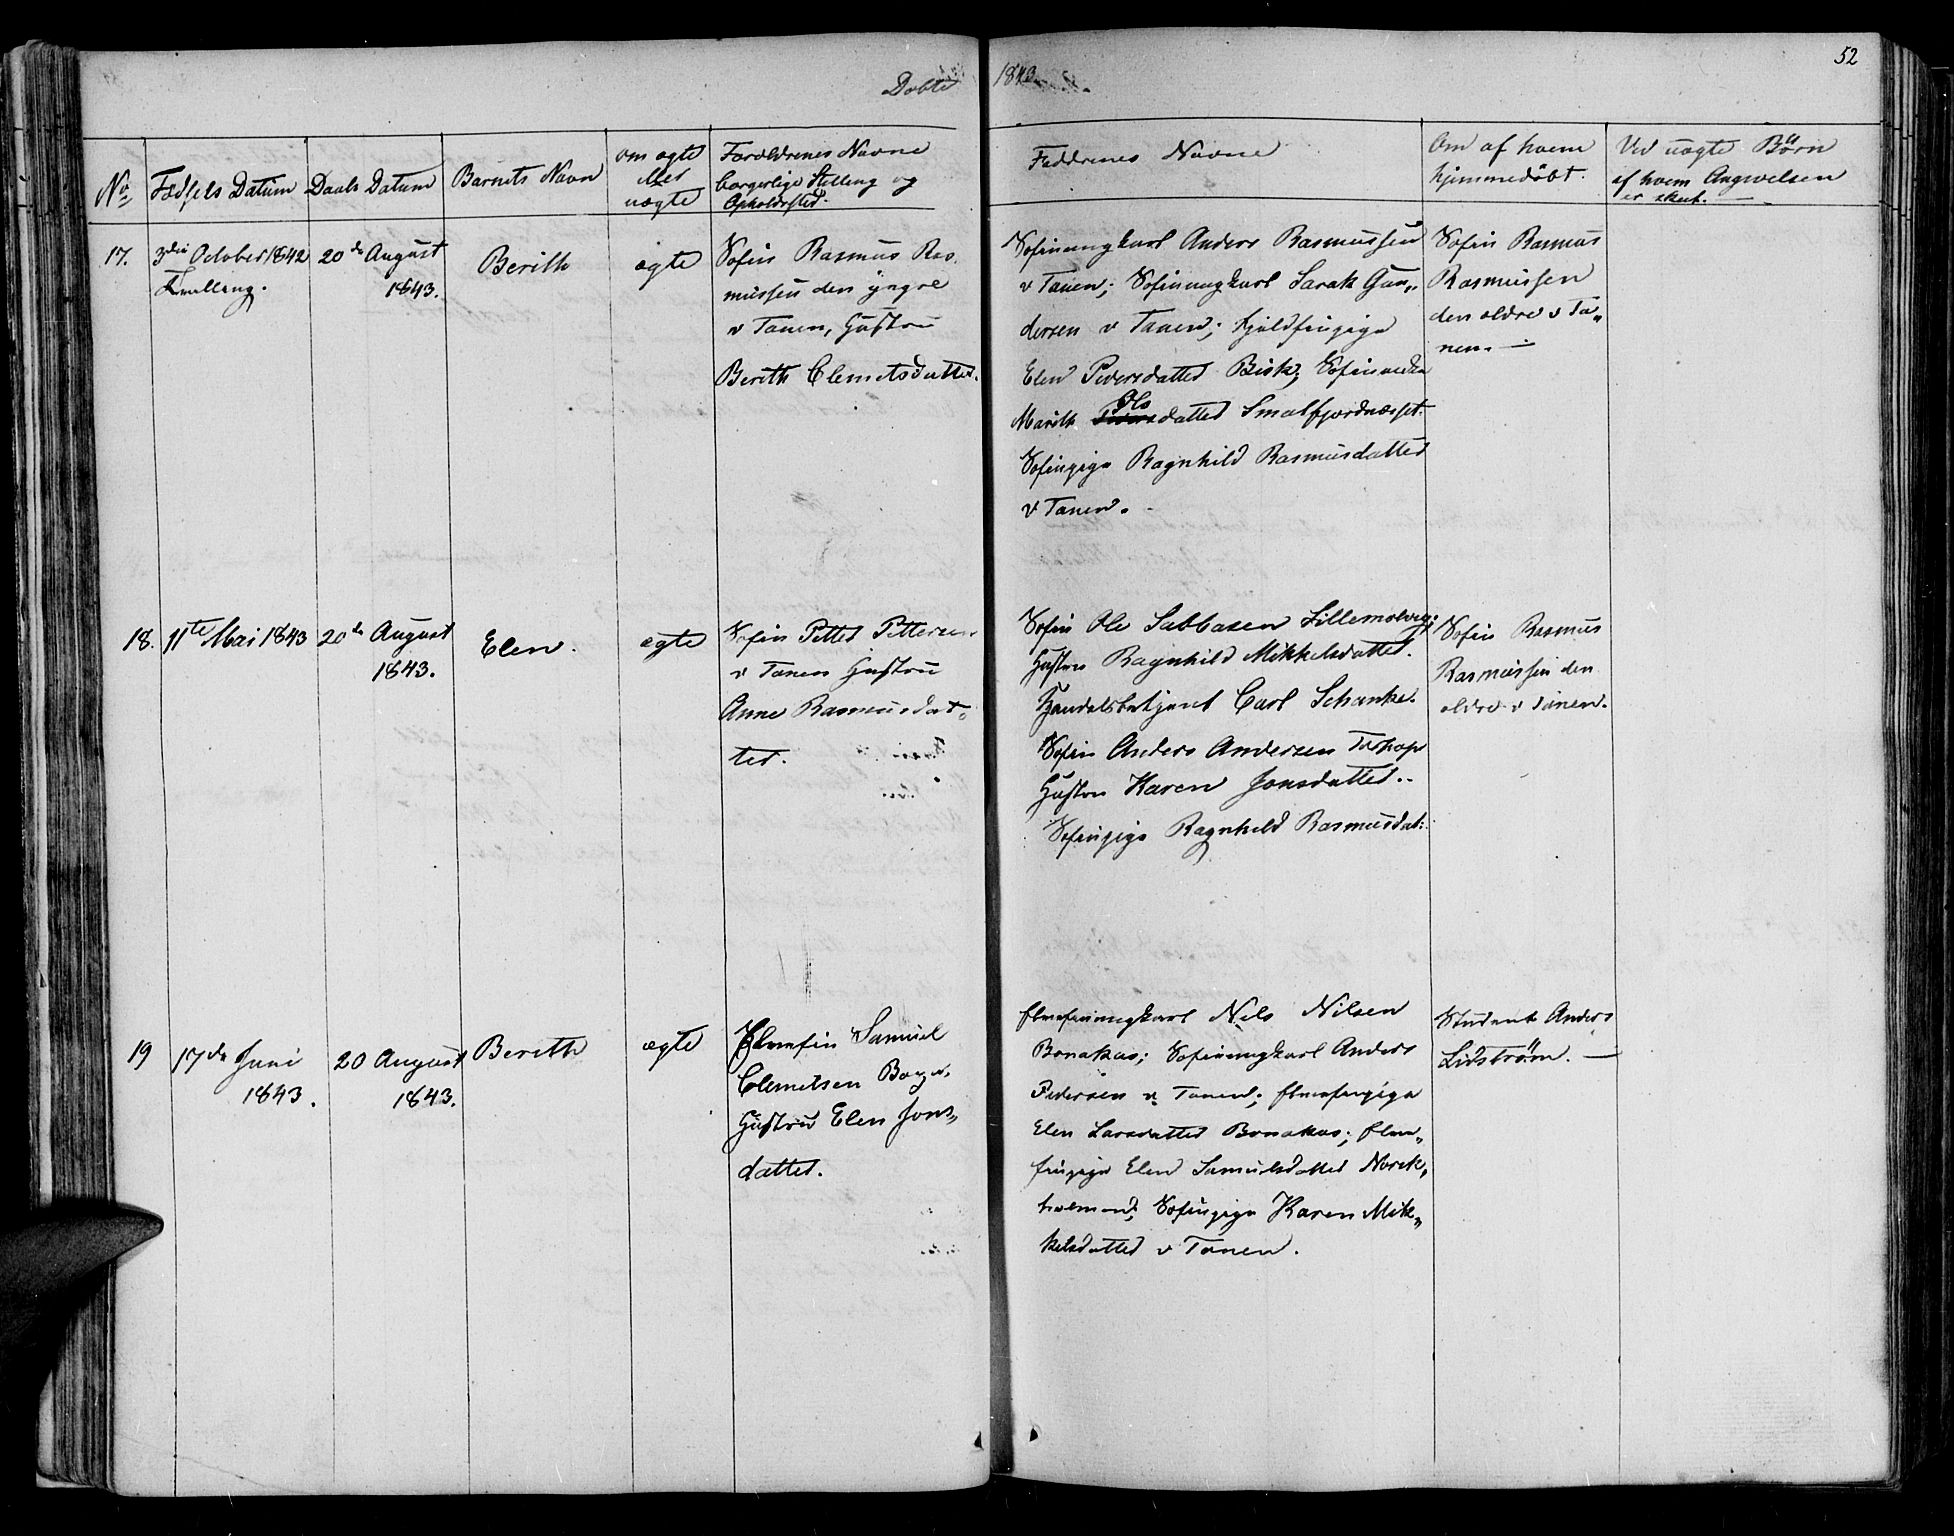 52
Døbte 1843
No
Fødsels Datum
Daabs Datum
Barnets Navn
om ægte
eller
uægte
Forældrenes Navne
borgerlige Stilling og
Opholdssted.
Faddrenes Navne
Om af hvem
hjemmedöbt.
Ved uægte Börn
af hvem Angivelsen
er skeet.
17.
3die October 1842
20de August
1843.
Berith
ægte
Søfin Rasmus Ras-
mussen den yngre
v Tanen, Hustru
Berith Clemetsdatter.
Søfinungkarl Anders Rasmussen
v Tanen; Søfinungkarl Sarak Gun„
dersen v Tanen; fjeldfinpige
Elen Pedersdatter Bisk; Søfinenke
Marith Pedersdatter Ols Smalfjordnæsset.
Søfinpige Ragnhild Rasmusdatter
v Tanen.
Søfin Rasmus
Rasmussen
den ældre v Ta„
nen.
18.
11te Mai 1843
20de August
1843.
Elen.
ægte
Søfin Petter Pettersen
v Tanen Hustru
Anne Rasmusdat„
ter.
Søfin Ole Sabbasen Lillemolvig;
Hustru Ragnhild Mikkelsdatter.
Handelsbetjent Carl Schanke.
Søfin Anders Andersen Torhop
Hustru Karen Jonsdatter.
Søfinpige Ragnhild Rasmusdat:
Søfin Rasmus
Rasmussen den
ældre v Tanen.
19
17de Juni
1843.
20 August
1843.
Berith
ægte
Elvefin Samuel
Clemetsen
Hustrue Elen Jons„
datter.
Elvefinungkarl Nils Nilsen
Bonakas; Søfinungkarl Anders
Pedersen v Tanen; Elvefinpige
Elen Larsdatter Bonakas; Elve„
finpige Elen Samuelsdatter Norsk„
holmen; Søfinpige Karen Mik„
kelsdatter v Tanen.
Student Anders
Lidström.